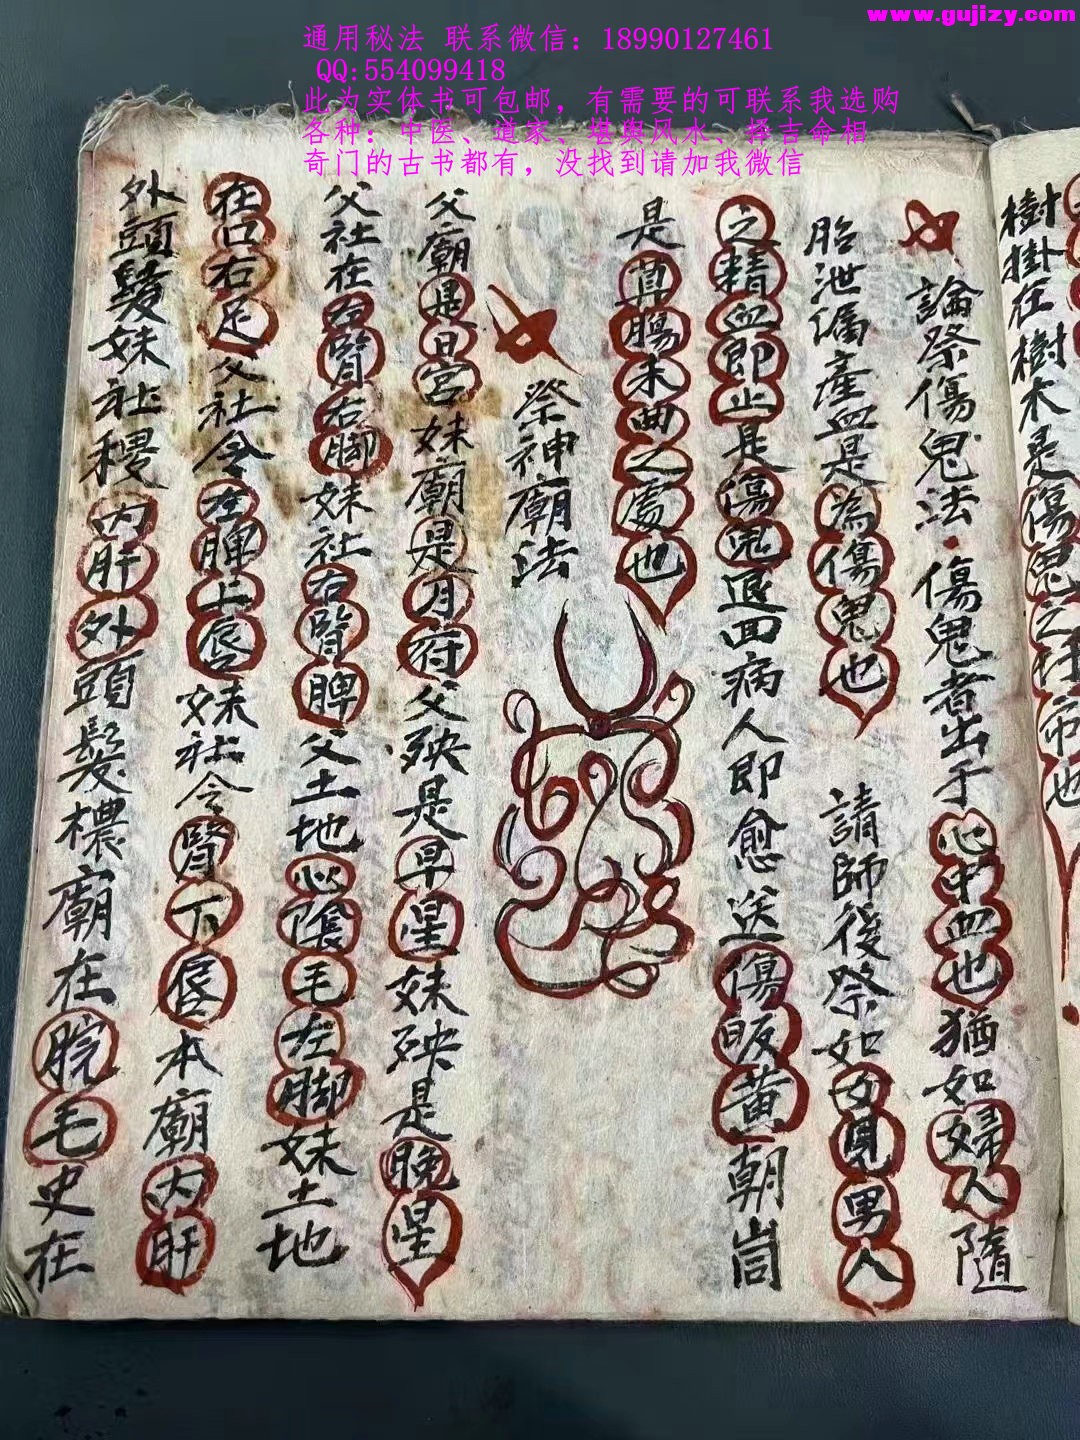 www.gujizy.com
通用秘法 联系微信：18990127461
QQ:554099418
此为实体书可包邮，有需要的可联系我选购
各种：中医、道家、堪舆风水、择吉命相
奇门的古书都有，没找到请加我微信
樹掛在樹木是傷鬼之 帝也
論祭傷鬼法·傷鬼者出于心中血也猶如婦人隨
胎泄漏產血是為傷鬼也 請師後祭如女見男人
之精血即止是傷鬼退回病人即愈送傷 黄朝
是 腸未曲之處也
祭神廟法
父廟是日宮妹廟是月府父殃是早星妹殃是晚星
父社在左腎右脚妹社右腎脾父土地心陰毛左脚妹土地
在口右足父社令左脾上唇妹社令腎下唇本廟内肝
外頭髮妹社稷内肝外頭髮檂廟在脘毛史在